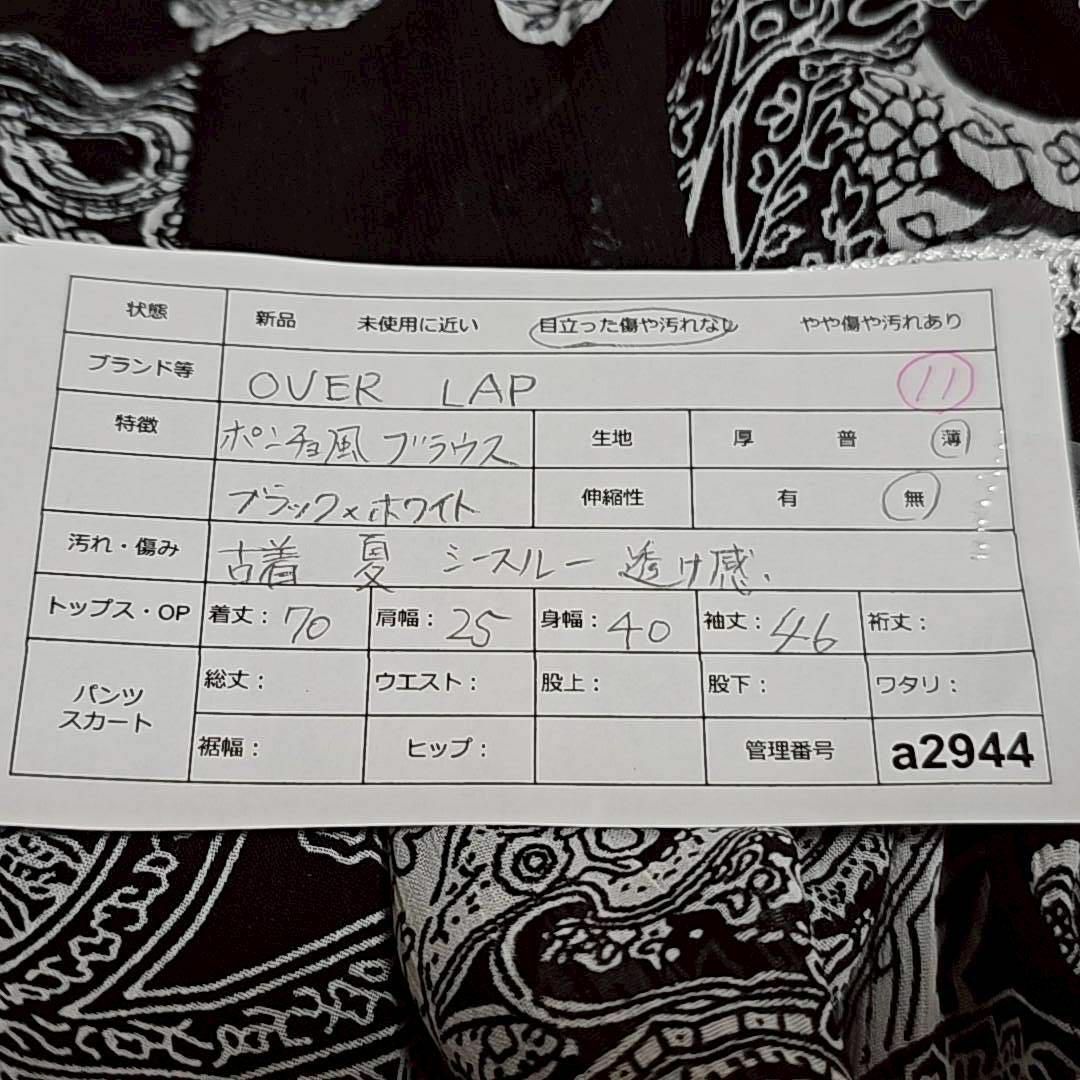 状態 新品 未使用に近い 目立った傷や汚れなし やや傷や汚れあり
ブランド等 OVER LAP 11
特徴 ポンチョ風ブラウス 生地 厚 普 薄
ブラック×ホワイト 伸縮性 有 無
汚れ・傷み 古着 夏 シースルー 透け感、
トップス・OP 着丈：70 肩幅：25 身幅：40 袖丈：46 裄丈：
パンツ
スカート
総丈： ウエスト： 股上： 股下： ワタリ：
裾幅： ヒップ： 管理番号 a2944